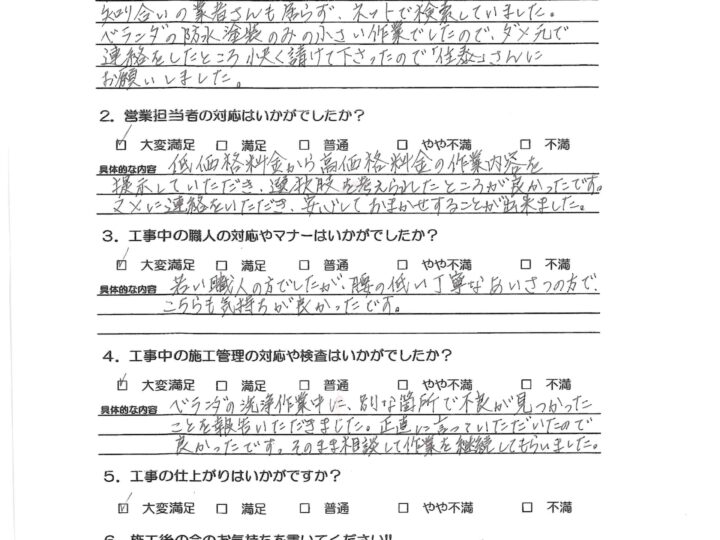 知り合いの業者さんも居らず、ネットで検索していました。
ベランダの防水塗装のみの小さい作業でしたので、ダメ元で
連絡をしたところ快く請けて下さったので「住泰」さんに
お願いしました。
2. 営業担当者の対応はいかがでしたか？
☑ 大変満足 □ 満足 □ 普通 □ やや不満 □ 不満
具体的な内容 低価格料金から高価格料金の作業内容を
提示していただき、選択肢を考えられたところが良かったです。
マメに連絡をいただき、安心しておまかせすることが出来ました。
3. 工事中の職人の対応やマナーはいかがでしたか？
☑ 大変満足 □ 満足 □ 普通 □ やや不満 □ 不満
具体的な内容 若い職人の方でしたが、腰の低い丁寧なあいさつの方で、
こちらも気持ちが良かったです。
4. 工事中の施工管理の対応や検査はいかがでしたか？
☑ 大変満足 □ 満足 □ 普通 □ やや不満 □ 不満
具体的な内容 ベランダの洗浄作業中に、別な箇所で不良が見つかった
ことを報告いただきました。正直に言っていただいたので
良かったです。そのまま相談して作業を継続してもらいました。
5. 工事の仕上がりはいかがですか？
☑ 大変満足 □ 満足 □ 普通 □ やや不満 □ 不満
6. 施工後の今のお気持ちを書いてください!!